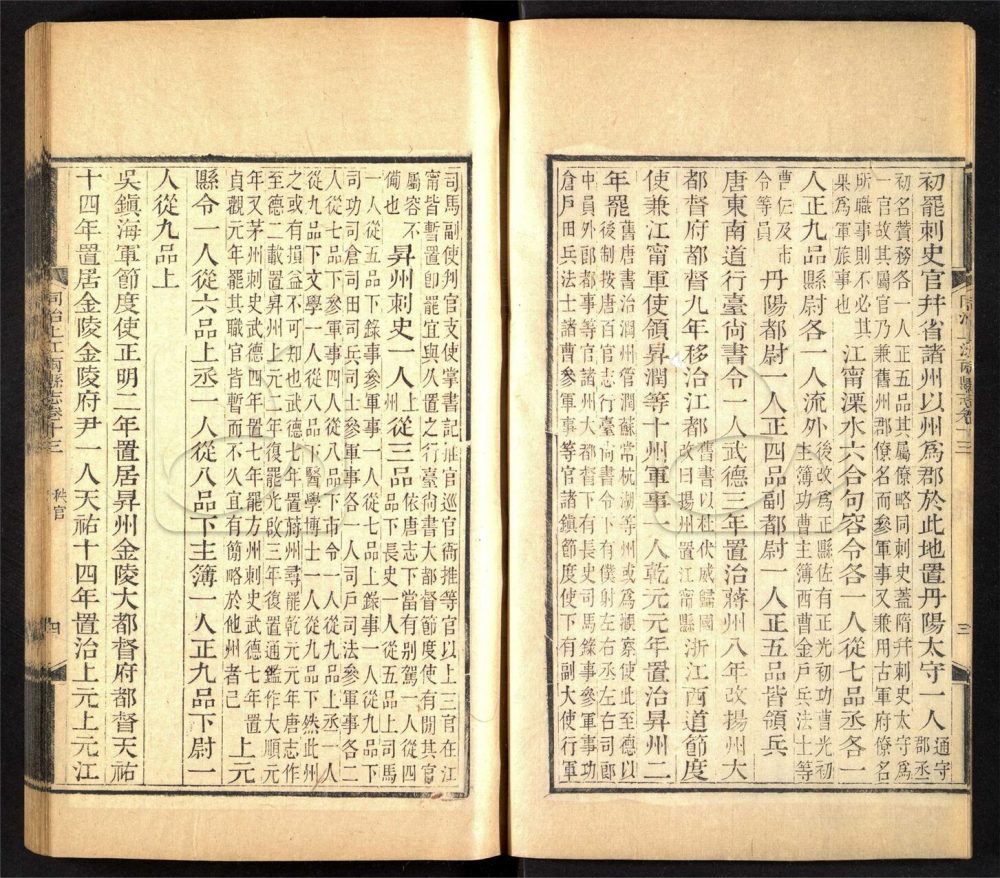 初罷刺史官幷省諸州以州爲郡於此地置丹陽太守一人通守郡丞
初名贊務各一人正五品其屬僚略同刺史蓋隋幷刺史太守爲
一官故其屬官乃兼舊州郡僚名而參軍事又兼用古軍府僚名
所職事則不必其果爲軍旅事也江甯溧水六合句容令各一人從七品丞各一
人正九品縣尉各一人流外後改爲正縣佐有正光初功曹光初主簿功曹主簿西曹金戸兵法士等
曹仨及市令等員丹陽都尉一人正四品副都尉一人正五品皆領兵
唐東南道行臺尚書令一人武德三年置治蔣州八年改揚州大
都督府都督九年移治江都舊書以杜伏威歸國改曰揚州置江甯縣浙江西道節度
使兼江甯軍使領昇潤等十州軍事一人乾元元年置治昇州二
年罷舊唐書治潤州管潤蘇常杭湖等州或爲觀察使此至德以後制按唐百官志行臺尚書令下有僕射左右丞左右司郎
中員外郎都事等官諸州大都督下有長史司馬錄事參軍事功
倉戸田兵法士諸曹參軍事等官諸鎮節度使下有副大使行軍
同治上江兩縣志卷十三
三
司馬副使判官支使掌書記推官巡官衙推等官以上三官在江
甯皆暫置卽罷宜與久置之行臺尚書大都督節度使有閒其官
屬容不備也昇州刺史一人上從三品依唐志下當有別駕一人從四品下長史一人從五品上司馬
一人從五品下錄事參軍事一人從七品上錄事一人從九品下
司功司倉司田司兵司士參軍事各一人司戸司法參軍事各二
人從七品下參軍事四人從八品下市令一人從九品上丞一人
從九品下文學一人從八品下醫學博士一人從九品下然此州
之或有損益不可知也武德七年置蔣州尋罷乾元元年唐志作
至德二載置昇州上元二年復罷光啟三年復置通鑑作大順元
年又茅州刺史武德四年置七年罷方州刺史武德七年置貞觀元年罷其職官皆暫而不久宜有簡略於他州者已上元
縣令一人從六品上丞一人從八品下主簿一人正九品下尉一
人從九品上
吳鎭海軍節度使正明二年置居昇州金陵大都督府都督天祐
十四年置居金陵金陵府尹一人天祐十四年置治上元上元江
同治上江兩縣志卷十三
秩官
四